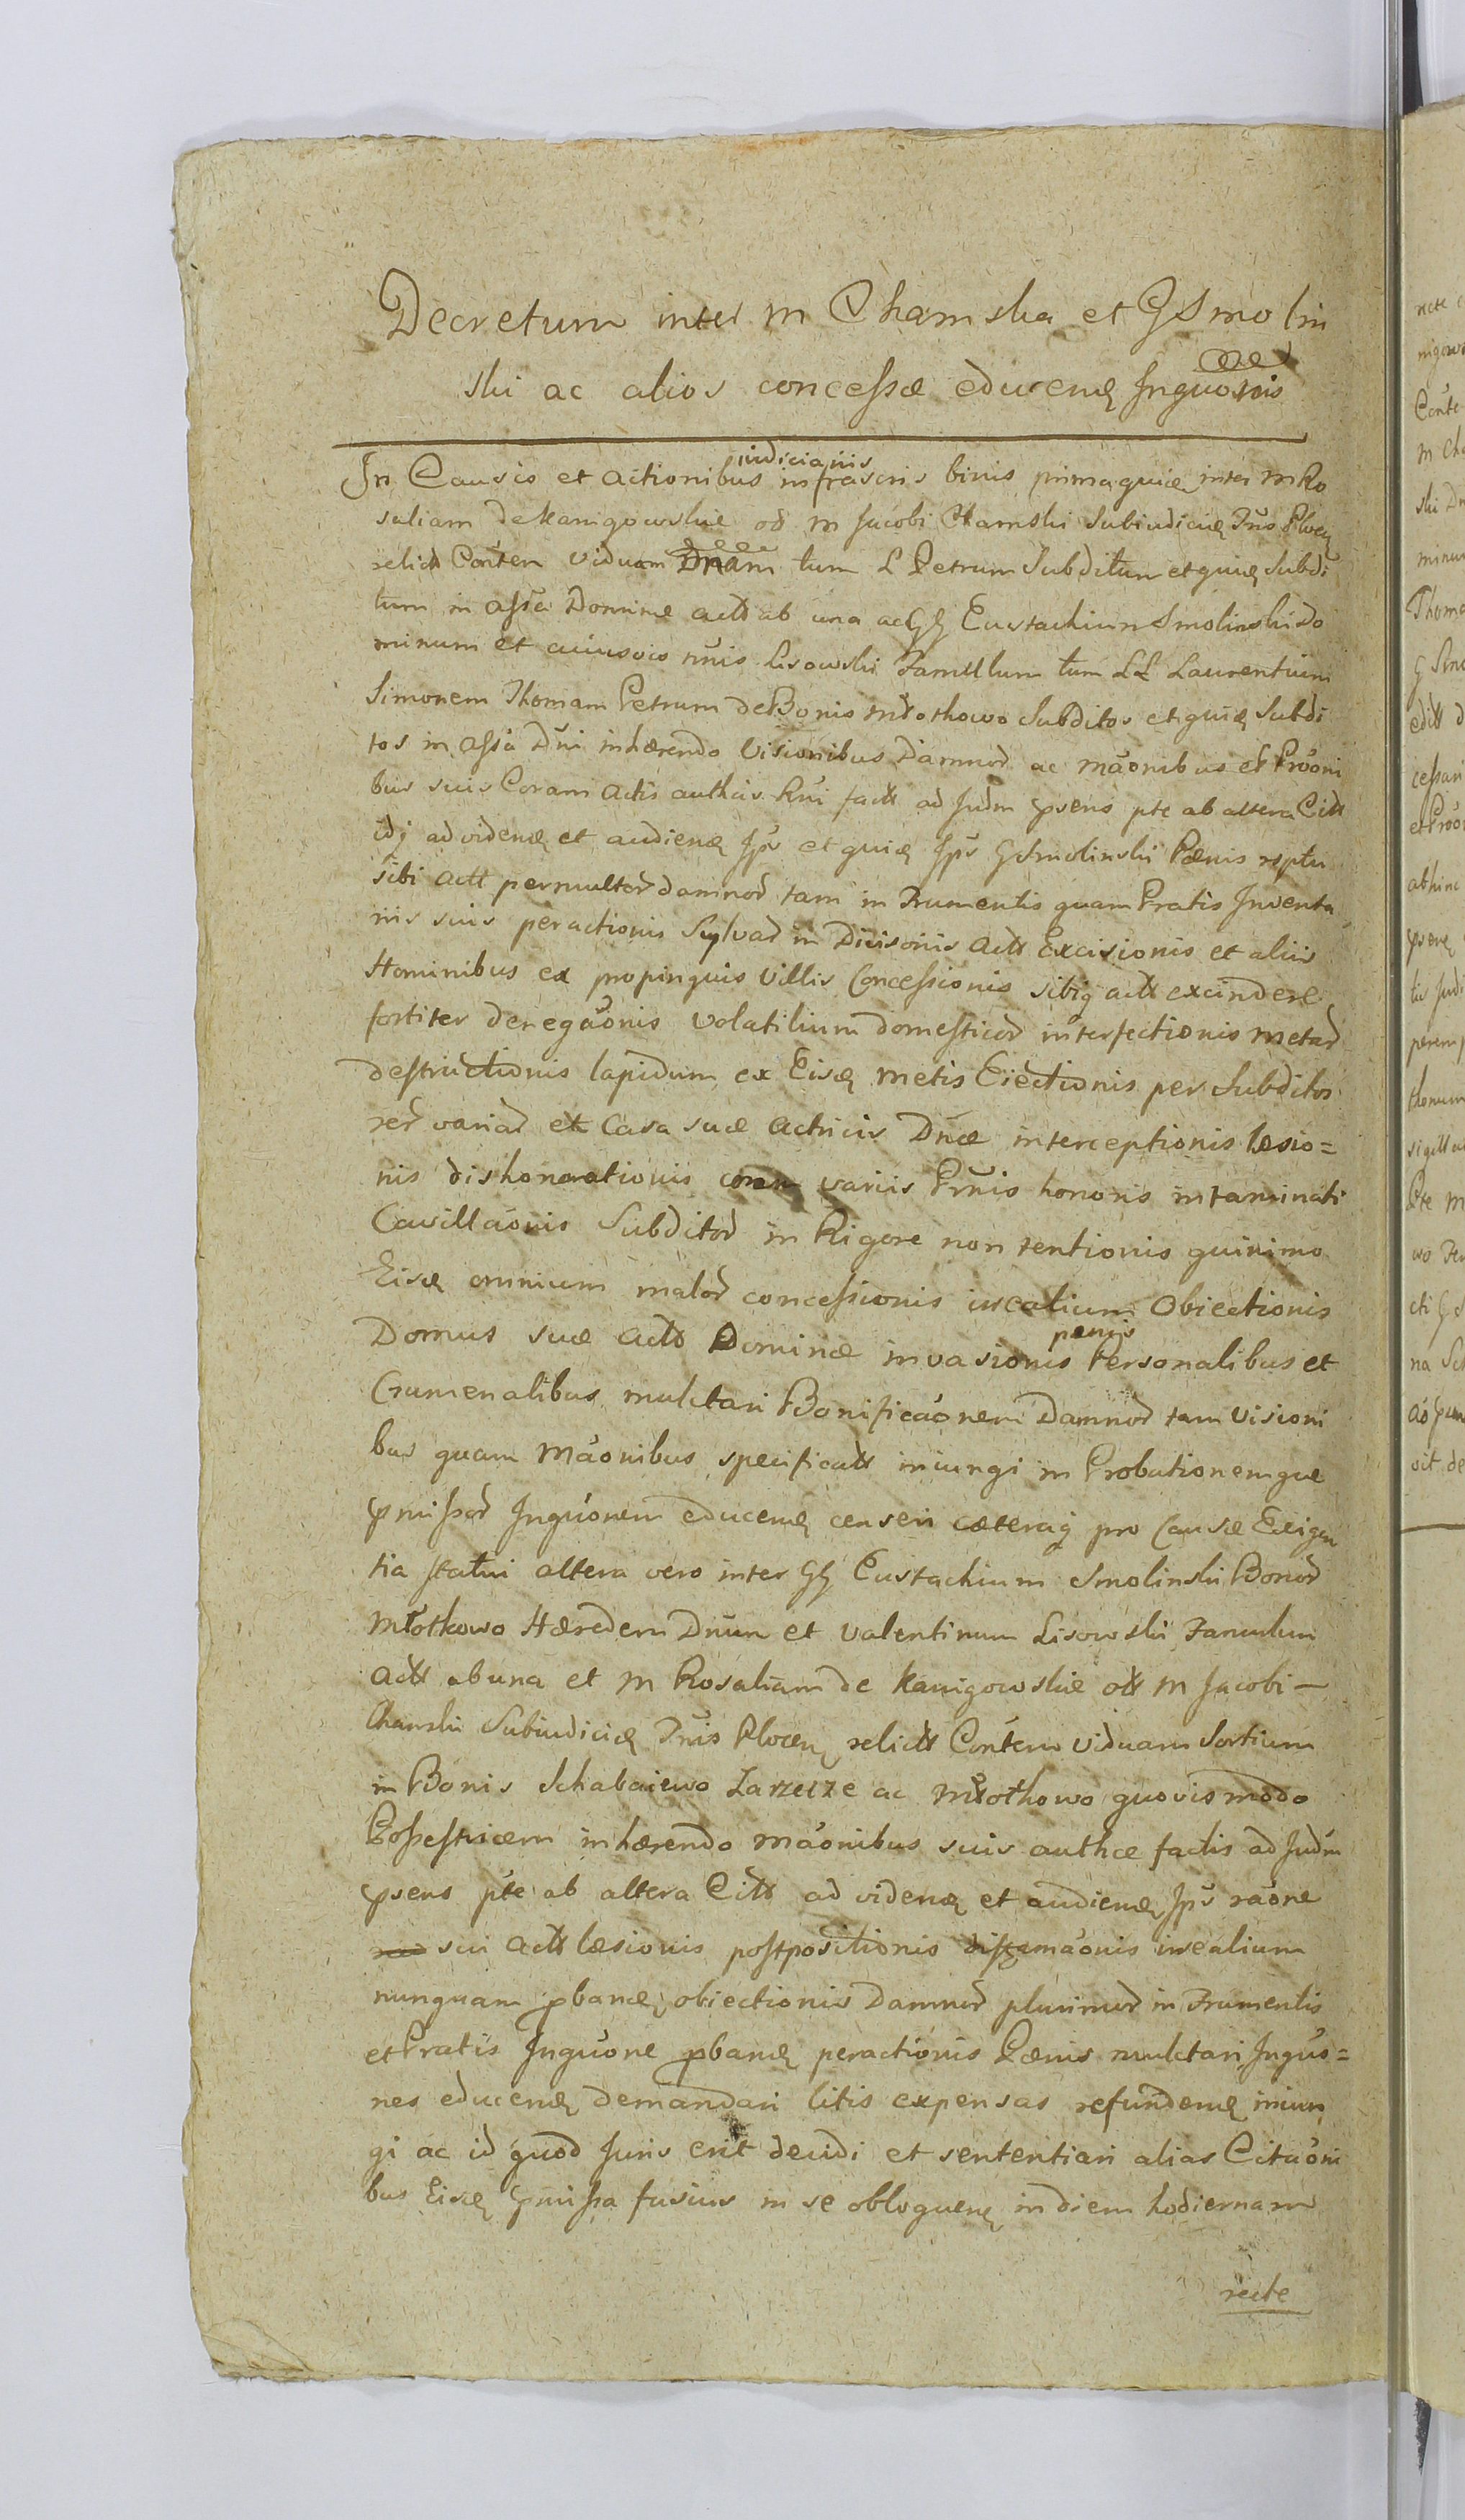 Decretum inter M Chamska et G Smolin
ski ac alios concessæ educenę Inquoỹis
iudiciariis
In Causis et Actionibus infrascris binis primaquię inter M Ro
saliam de Kanigowskie oð M Jacobi Chamski Subiudicię Tr̃is Plocę
relict Conten viduam Dnam tum L Petrum Subditum et quię Subdi
tum in assã Dominæ actt ab una ac GG Eustachium Smolinski Do
minum et cuiusvis nñis Lisowski Famullum tum LL Laurentium
Simonem Thomam Petrum de Bonis Młotkowo Subditos et quię Subdi
tos in assã Dñi inhærendo Visionibus Damnoꝝ ac Mãonibus et Prõoni
bus suis Coram Actis authcis Rñi factt ad Judm pñsens pte ab altera Citt
idq ad videnę et audienę Ips̃ et quię Ips̃ G Smolinski Pænis rsptu
sibi actt permultoꝝ damnoꝝ tam in Frumentis quam Pratis Inventa
riis suis peractionis Sylvaꝝ in Divisoriis actt Excisionis et aliis
Hominibus ex propinquis Villis Concessionis sibiq actt excindere
fortiter denegãonis volatilium domesticoꝝ interfectionis metaꝝ
destructionis lapidum ex Eisdę metis Eiectionis per Subditos
rerꝝ variaꝝ et Casa suæ Actricis Dñæ interceptionis læsio=
nis dishonorationis coram variis Prñis honoris intaminati
Cavillãonis Subditoꝝ in Rigore non tentionis quinimo
Eisdę omnium maloꝝ concessionis iuxealium Obiectionis
pænis
Domus suæ actt Dominæ invasionis Personalibus et
Crumenalibus mulctari Bonificãonem Damnoꝝ tam visioni
bus quam Mãonibus specificatt iniungi in Probationemque
præmissoꝝ Inquõnem educenę censeri cæteraq pro Causæ Exigen
tia statui altera vero inter GG Eustachium Smolinski Bonoꝝ
Młotkowo Hæredem Dñum et Valentinum Lisowski Famulum
Actt ab una et M Rosaliam de Kanigowskie ott M Jacobi —
Chamski Subiudicię Tr̃is Plocen relictt Contem viduam Sortium
in Bonis Schabaiewo Zarzecze ac Młotkowo quovismodo
Possestricem inhærendo Mãonibus suis authce factis ad Judm
pñsens pte ab altera Citt ad videnę et audienę Ips̃ rãone
sui Actt læsionis postpositionis diffamãonis iuxealium
nunquam pbandę obiectionis Damnoꝝ plurimoꝝ in Frumentis
et Pratis Inquõne pbanę peractionis Pænis mulctari Inquõ=
nes educenę demandari litis expensas refundenę iniun
gi ac id quod Juris erit decidi et sententiari alias Citãoni
bus Eisdę præmissa fusius in se obloquenę in diem hodiernam
recte